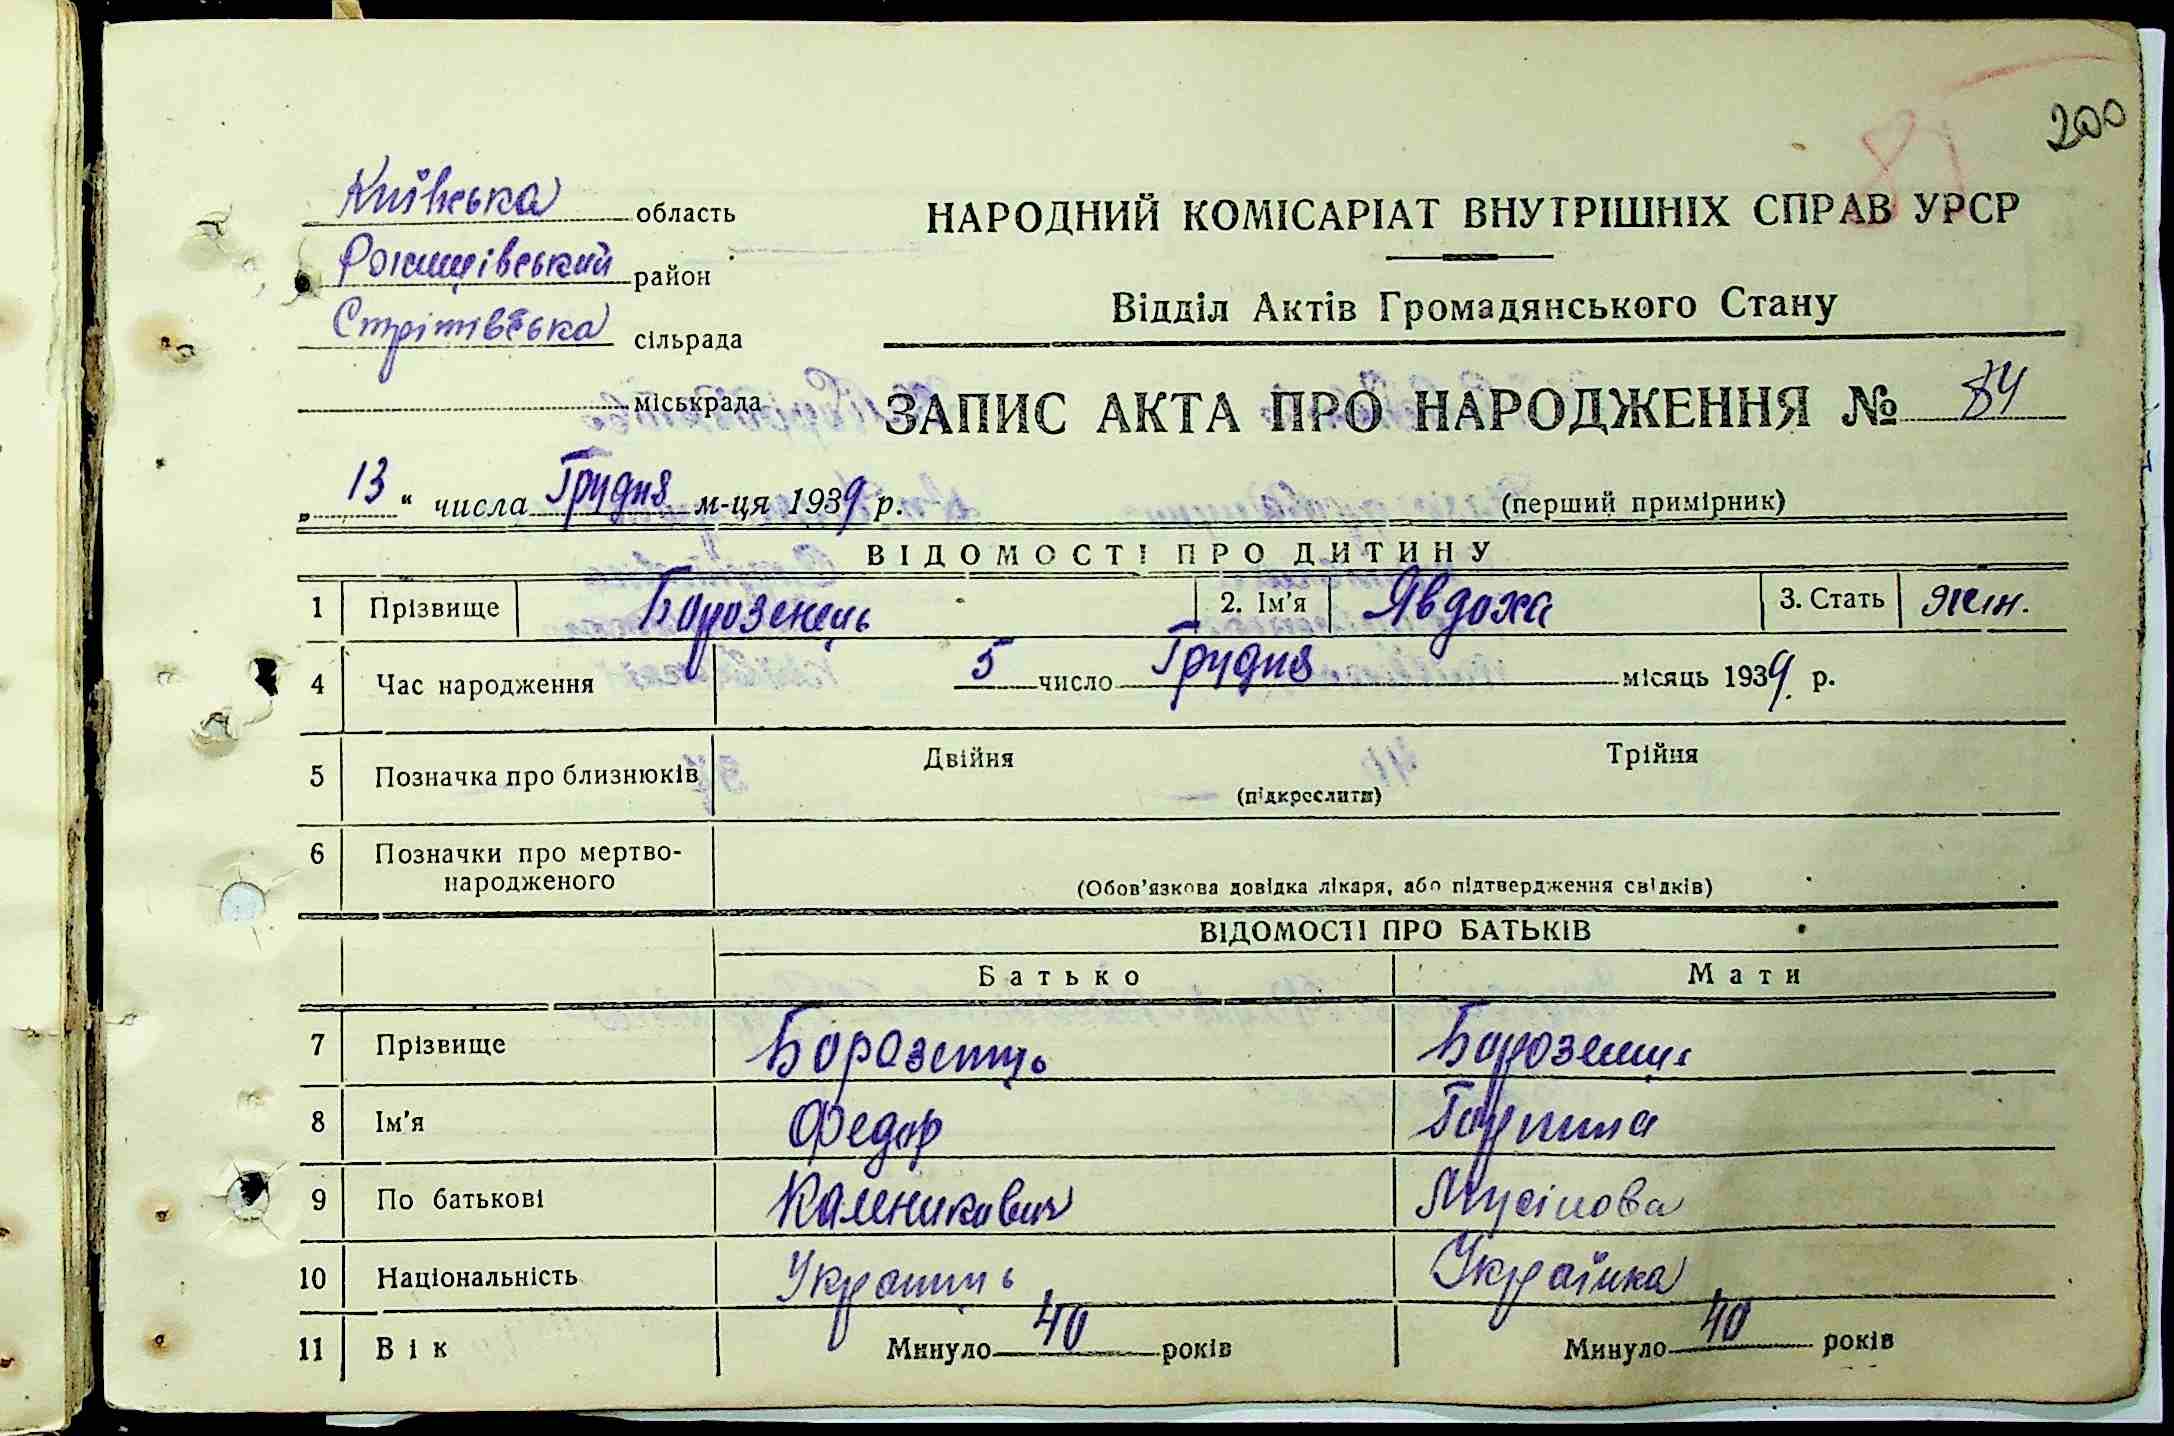 200
Київська область
Рокищівський район
Стрітівська сільрада
міськрада
НАРОДНИЙ КОМІСАРІАТ ВНУТРІШНІХ СПРАВ УРСР
Відділ Актів Громадянського Стану
ЗАПИС АКТА ПРО НАРОДЖЕННЯ № 84
„ 13 “ числа Грудня м-ця 1939 р. (перший примірник)
ВІДОМОСТІ ПРО ДИТИНУ
1 Прізвище Борозенець 2. Ім'я Явдоха 3. Стать жін.
4 Час народження 5 число Грудня місяць 1939 р.
5 Позначка про близнюків Двійня Трійня
(підкреслити)
6 Позначки про мертво-
народженого
(Обов'язкова довідка лікаря, або підтвердження свідків)
ВІДОМОСТІ ПРО БАТЬКІВ
Батько Мати
7 Прізвище Борозенць Борозенць
8 Ім'я Федор Горпина
9 По батькові Каленикович Мусіпова
10 Національність Українць Українка
11 Вік Минуло 40 років Минуло 40 років